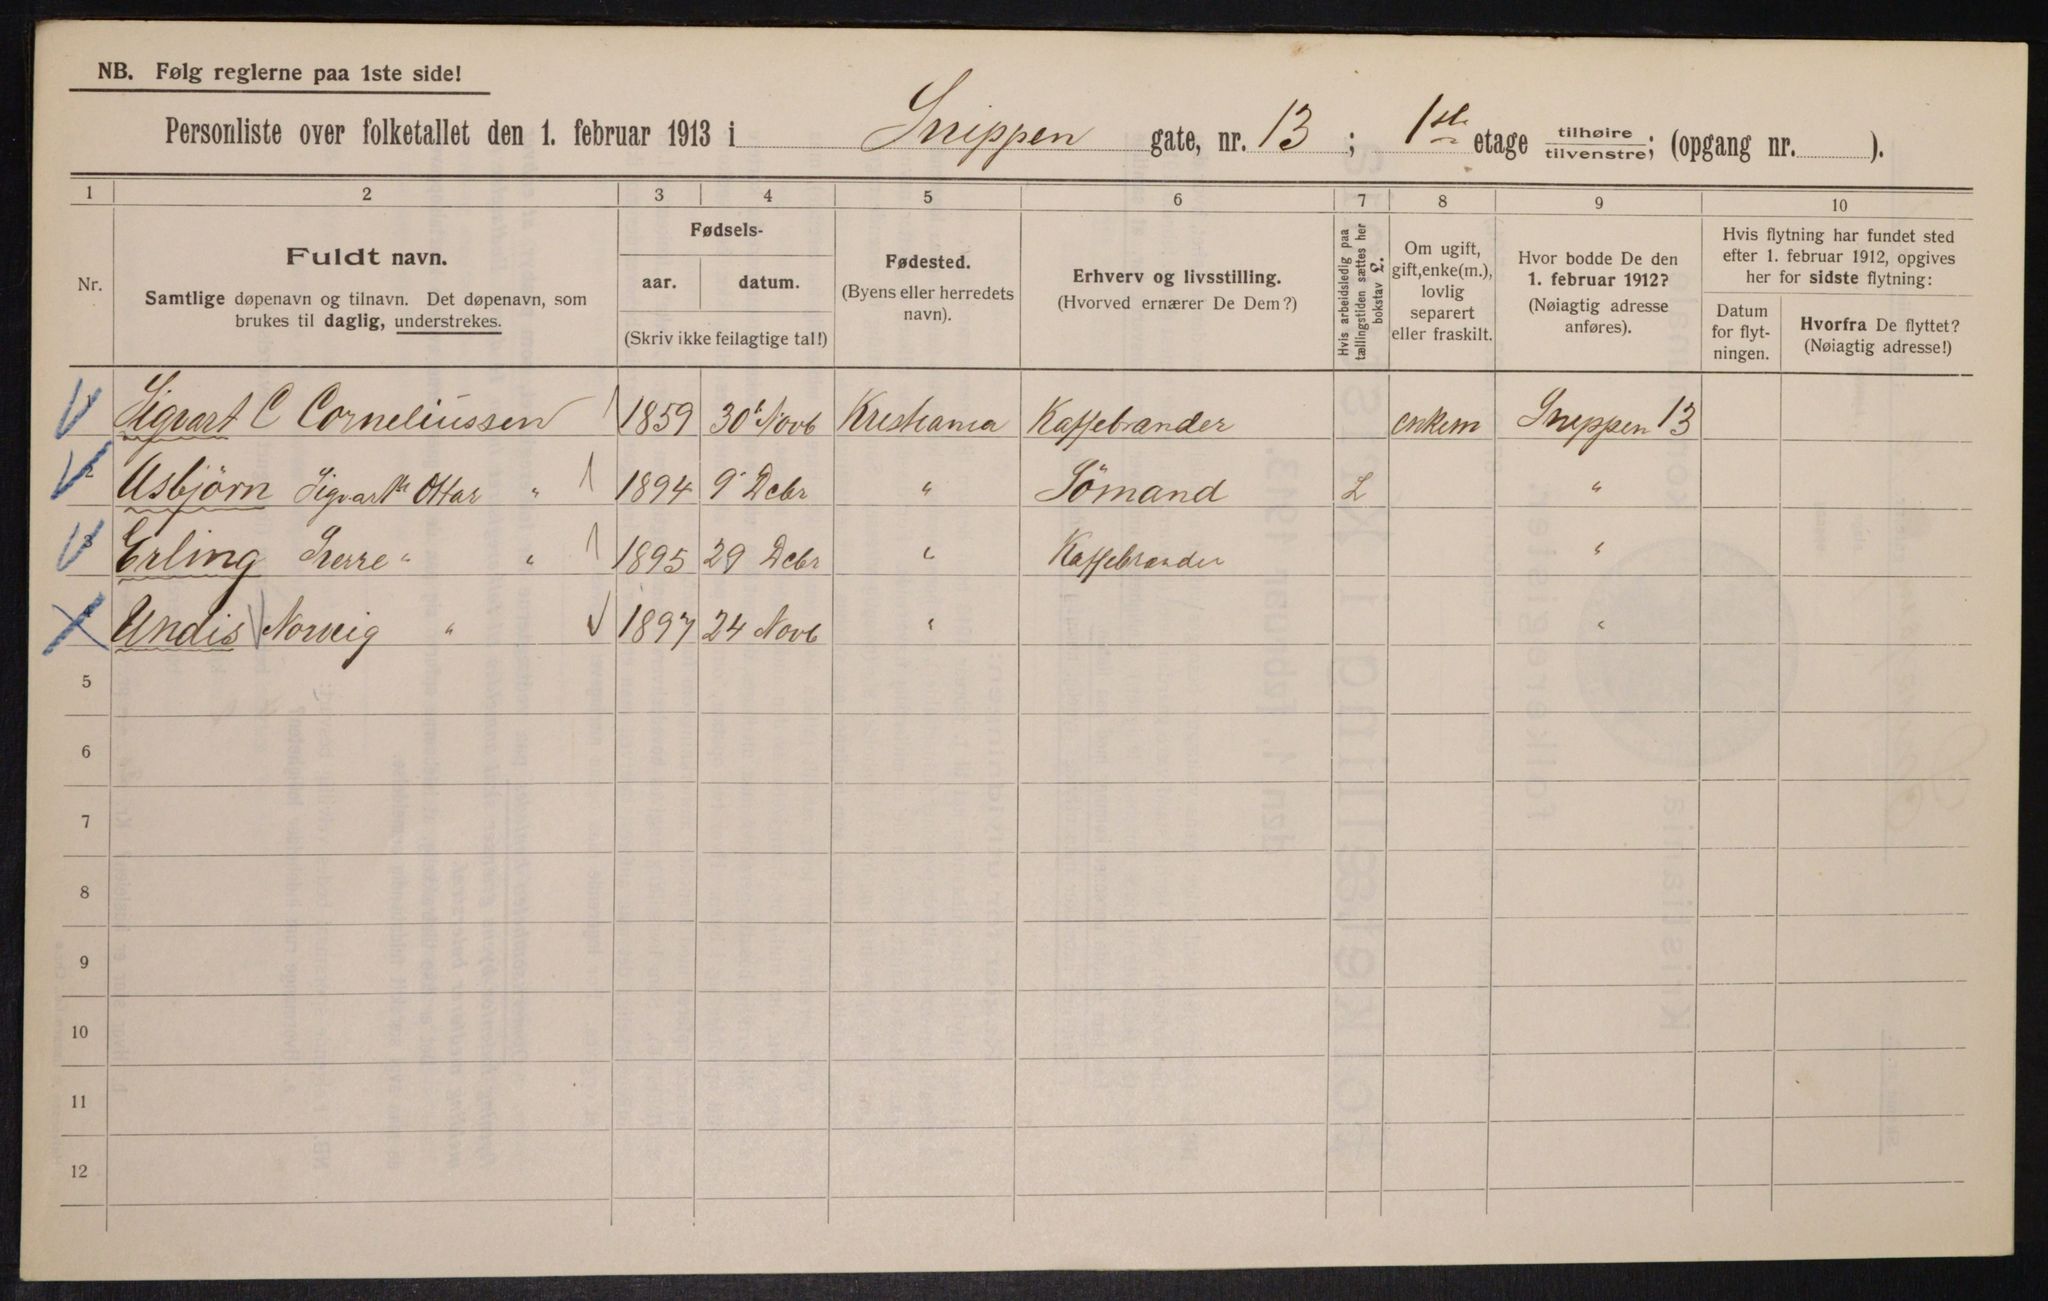 NB. Følg reglerne paa 1ste side!
Personliste over folketallet den 1. februar 1913 i Snippen gate, nr. 13 ; 1ste etage tilhøire tilvenstre; (opgang nr. ).
1 2 3 4 5 6 7 8 9 10
Nr.
Fuldt navn.
Samtlige døpenavn og tilnavn. Det døpenavn, som
brukes til daglig, understrekes.
Fødsels-
aar. datum.
(Skriv ikke feilagtige tal!)
Fødested.
(Byens eller herredets
navn).
Erhverv og livsstilling.
(Hvorved ernærer De Dem?)
Hvis arbeidsledig paa
tællingstiden sættes her
bokstav L.
Om ugift,
gift, enke(m.),
lovlig
separert
eller fraskilt.
Hvor bodde De den
1. februar 1912?
(Nøiagtig adresse
anføres).
Hvis flytning har fundet sted
efter 1. februar 1912, opgives
her for sidste flytning:
Datum
for flyt-
ningen.
Hvorfra De flyttet?
(Nøiagtig adresse!)
1 Sigvart C Corneliussen 1859 30' Novb Kristiania Kaffebrænder enkem Snippen 13
2 Asbjörn Sigvart Ottar " 1894 9' Dcbr " Sömand L "
3 Erling Sverre " " 1895 29 Dcbr " Kaffebrænder "
Undis Norveig " 1897 24 Novb " "
5
6
7
8
9
10
11
12